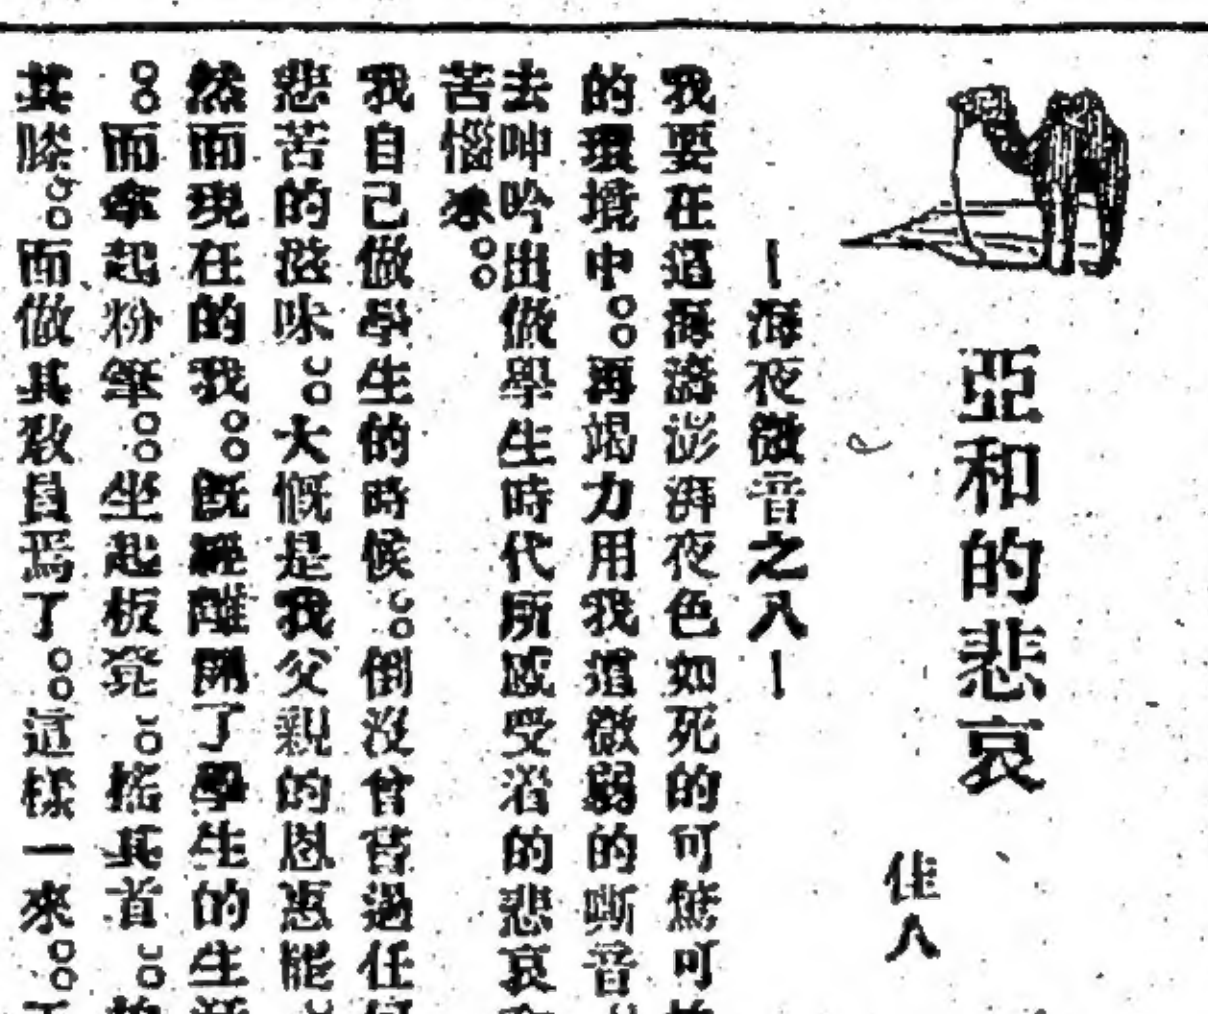 亞和的悲哀
佳人
—海夜微音之八—
我要在這海濤澎湃夜色如死的可驚可
的環境中。。再竭力用我這微弱的嘶音
去呻吟出做學生時代所感受着的悲哀
苦惱來。。
我自己做學生的時候。。倒沒曾嘗過任何
悲苦的滋味。。大慨是我父親的恩惠能
然而現在的我。。既經離開了學生的生活
。。而拿起粉筆。。坐起板凳。。搖其首。。
其膝。。而做其敎員焉了。。這樣一來。。